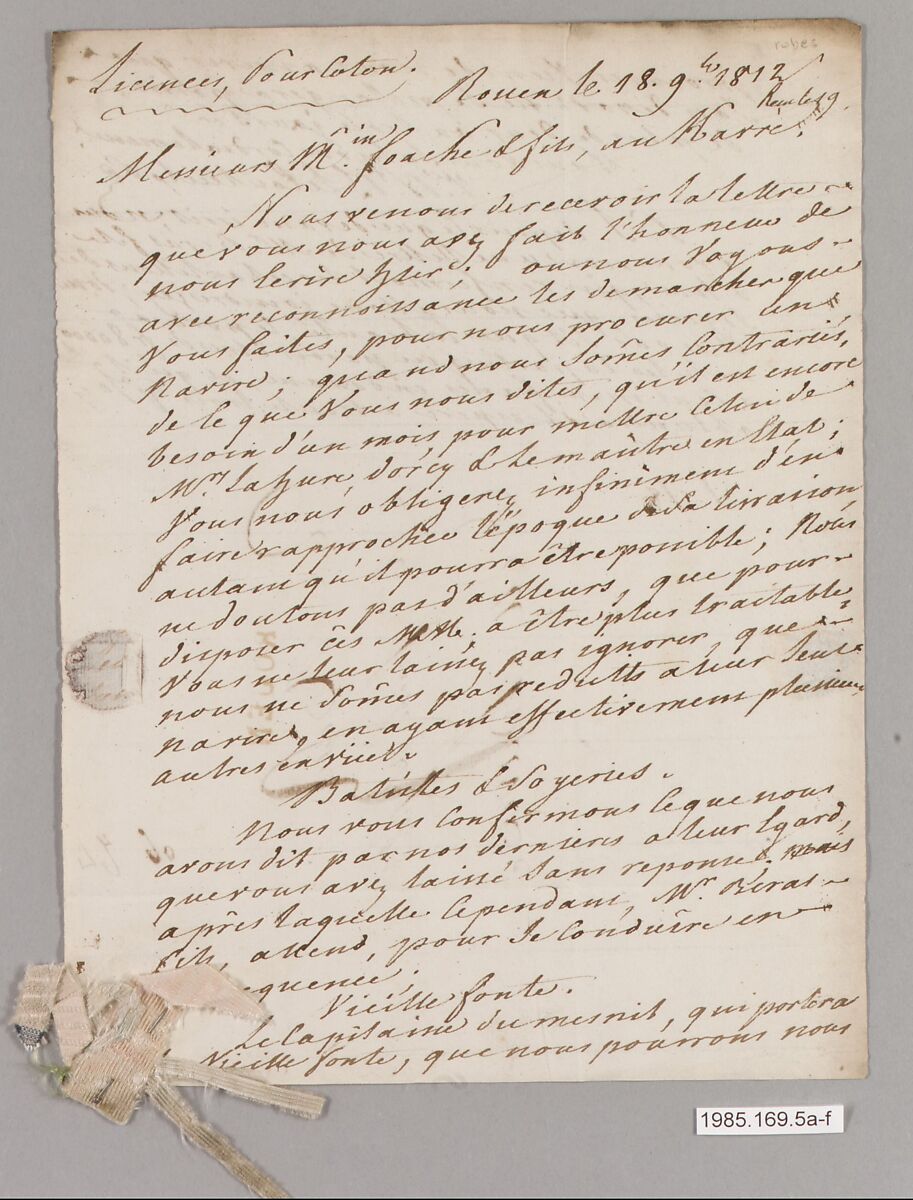 robes
Licences, pour Coton.
Rouen le. 18. 9.bre 1812
Messieurs M.in foache & fils, au Havre.
Nous venons de recevoir la lettre
que vous nous avez fait l'honneur de
nous ecrire hier; ou nous voyons
avec reconnoissance les demarches que
Vous faites, pour nous procurer un
Navire; quand nous somes contrariés,
de ce que Vous nous dites, qu'il est encore
besoin d'un mois pour mettre celui de
M.rs Lahure dorcy & Lemaître en Etat;
Vous nous obligerez infiniment d'en
faire rapprochée l'époque de sa livraison
autant qu'il pourra être possible; Nous
ne doutons pas d'ailleurs, que pour
disposer ces MM. a être plus traitable
Vous ne leur laissez pas ignorer, que
nous ne somes pas reduits a leur seul
navire, en ayant effectivement plusieurs
autres en vüe.
Batistes & Soyeries.
Nous vous confermons ce que nous
avons dit par nos derniers a leur Egard,
que vous avez laissé sans reponse
après laquelle cependant, M.r Béras
fils, attend, pour se conduire en
equence.
Vieille fonte.
Le Capitaine dumesnil, qui portera
Vieille fonte, que nous pourrons nous
1985.169.5a-f